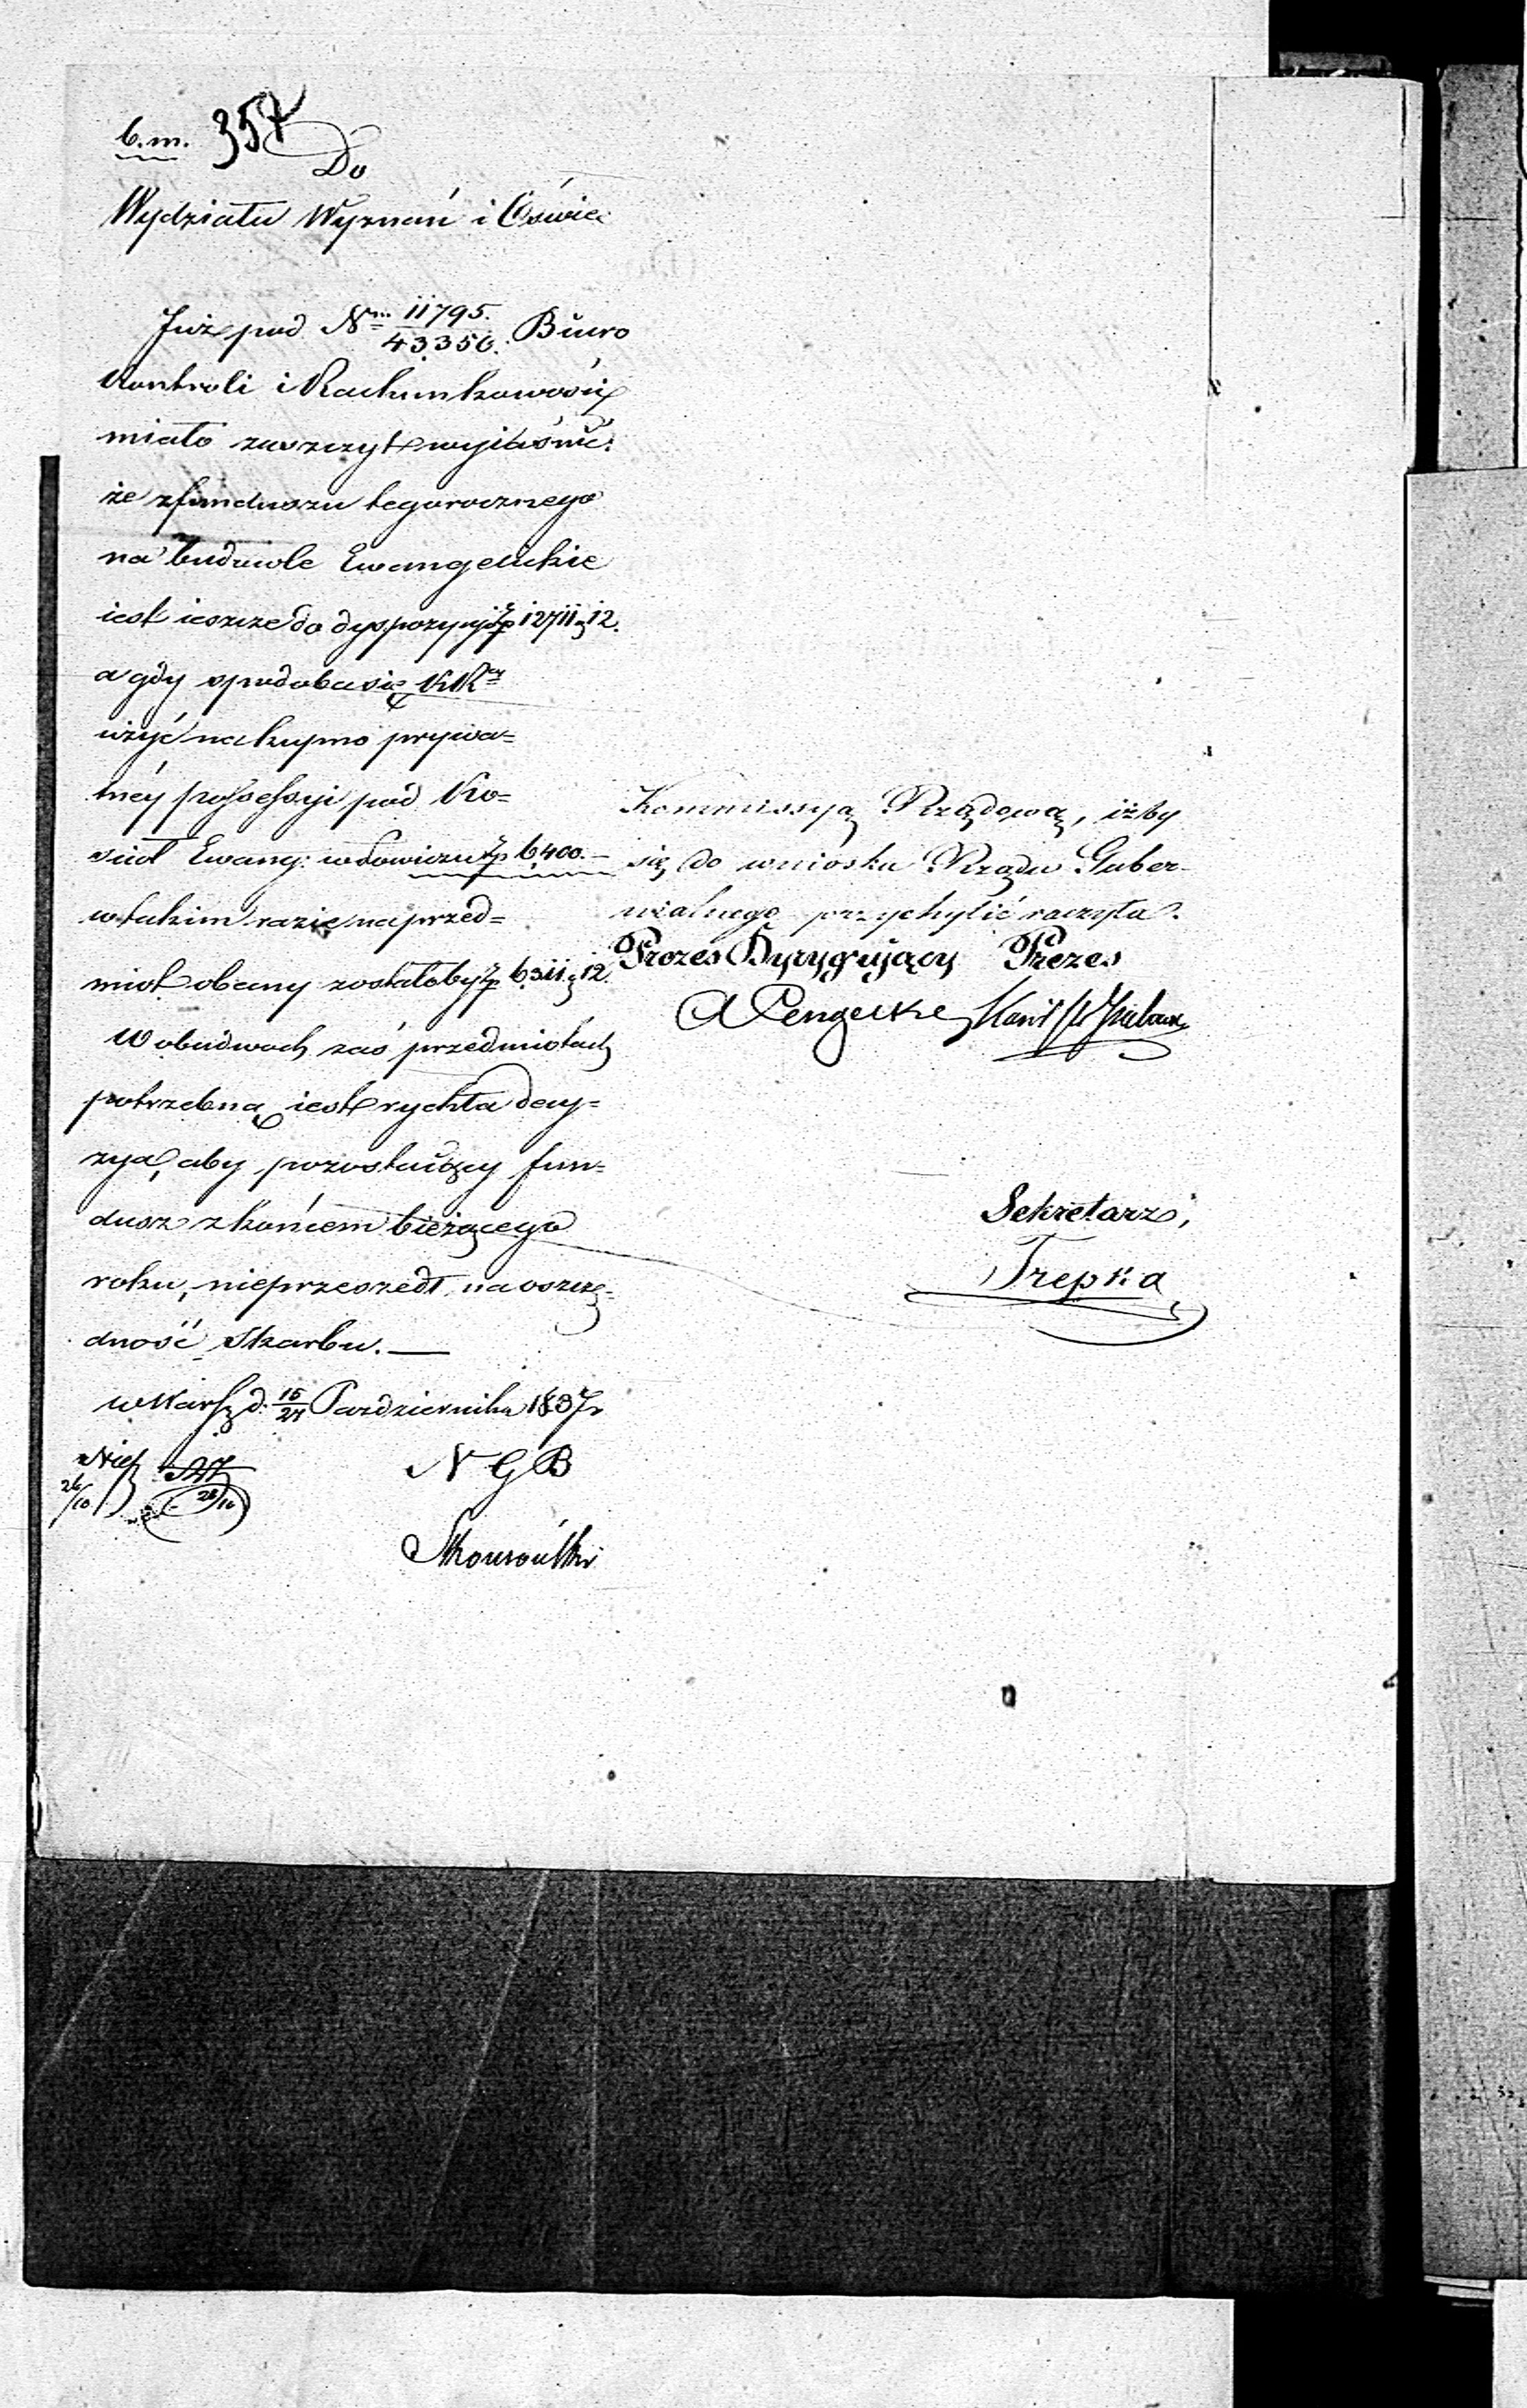 b. m. 357
Do
Wydziału Wyznań i Oświec:
Już pod Nrm 11795. / 43356. Biuro
Kontroli i Rachunkowości
miało zaszczyt wyiaśnić:
że z funduszu tegorocznego
na budowle Ewangelickie
iest ieszcze do dyspozycji Zp 12711 g 12.
a gdy spodoba się KR
użyć na kupno prywa=
tnéy possessyi pod Ko=
sciół Ewang: w Łowiczu Zp 6400.—
w takim razie na przed=
miot obecny zostałoby Zp 6311 g 12.
W obudwóch zaś przedmiotach
potrzebną iest rychła decy=
zya, aby pozostaiący fun=
dusz z końcem bieżącego
roku, nieprzeszedł na oszczę=
dność Skarbu. —
w Warsz d. /24 Pazdziernika 1837 r
26/10 28/10
N G B
Kommissyą Rządową, iżby
się do wniosku Rządu Guber-
nialnego przychylić raczyła.
Prezes Dyrygujący Prezes
Sekretarz,
Trepka